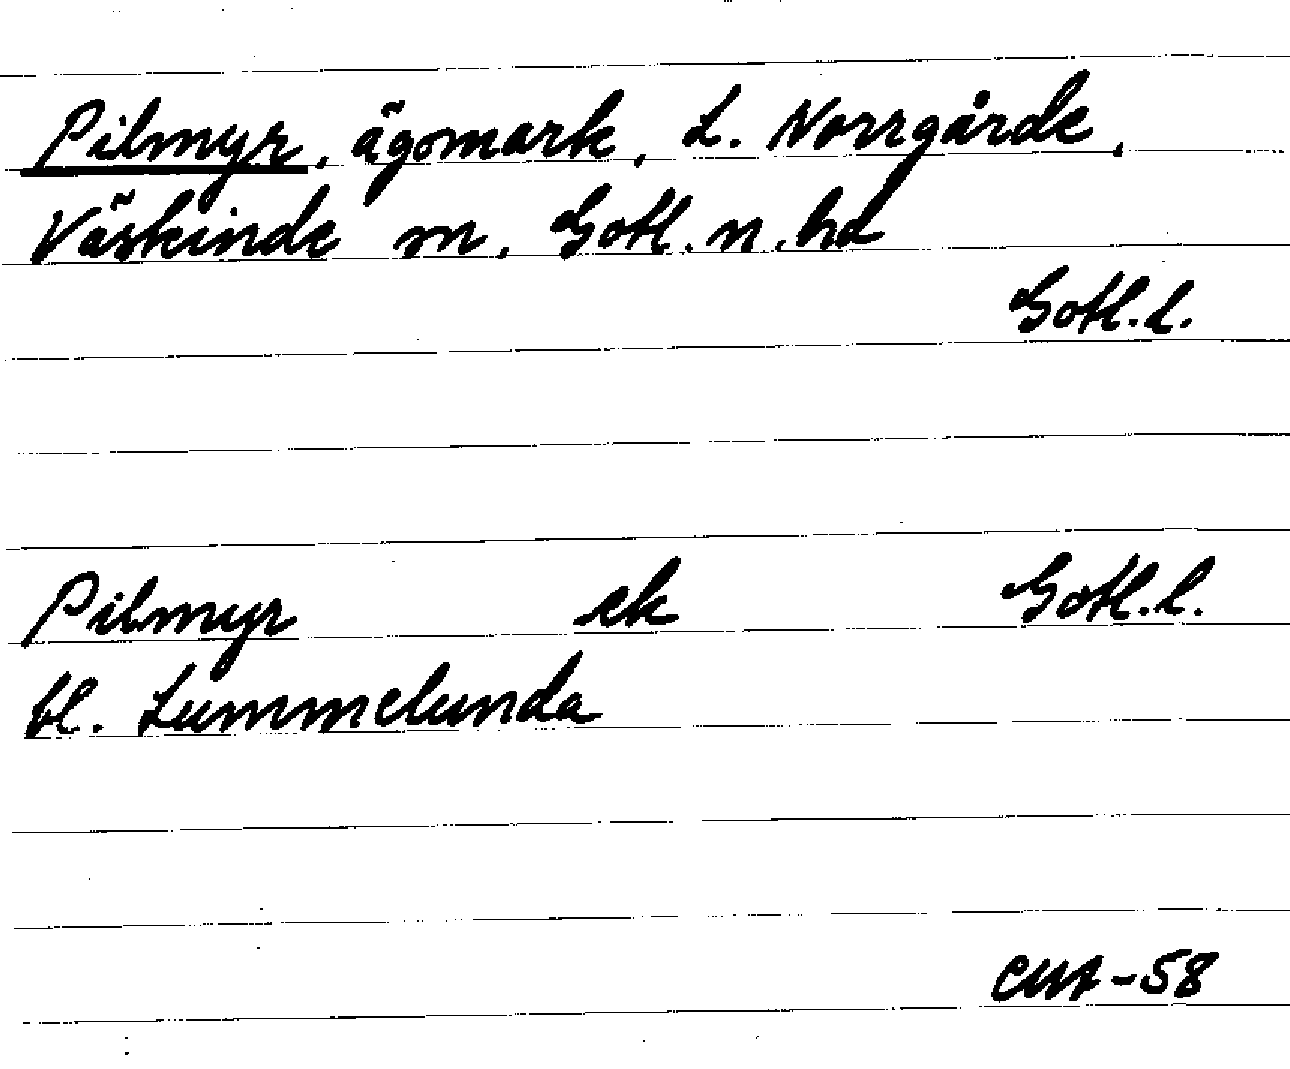 Pilmyr, ägomark, L. Norrgårde,
Väskinde sn, Gotl. n. hd
Gotl. l.
Pilmyr ek Gotl. l.
bl. Lummelunda
CMA-58